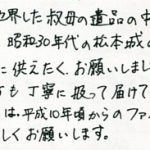 世界した叔母の遺品の中
昭和30年代の松本城の
に供えたく、お願いしまし
ても丁寧に扱って届けて
は、平成10年頃からのファ
しくお願いします。